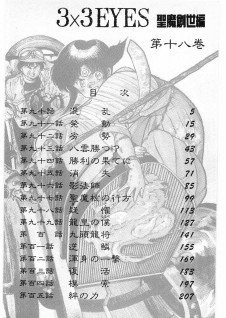 3×3EYES 聖魔創世編
第十八巻
目次
第九十話 混乱 5
第九十一話 発動 15
第九十二話 劣勢 29
第九十三話 八雲勝つ!? 43
第九十四話 勝利の果てに 57
第九十五話 消失 71
第九十六話 影法師 85
第九十七話 聖魔石の行方 99
第九十八話 疑惑 113
第九十九話 龍皇の僕 127
第百話 九頭龍将 141
第百一話 逆鱗 155
第百二話 渾身の一撃 169
第百三話 復活 183
第百四話 模索 197
第百五話 絆の力 207